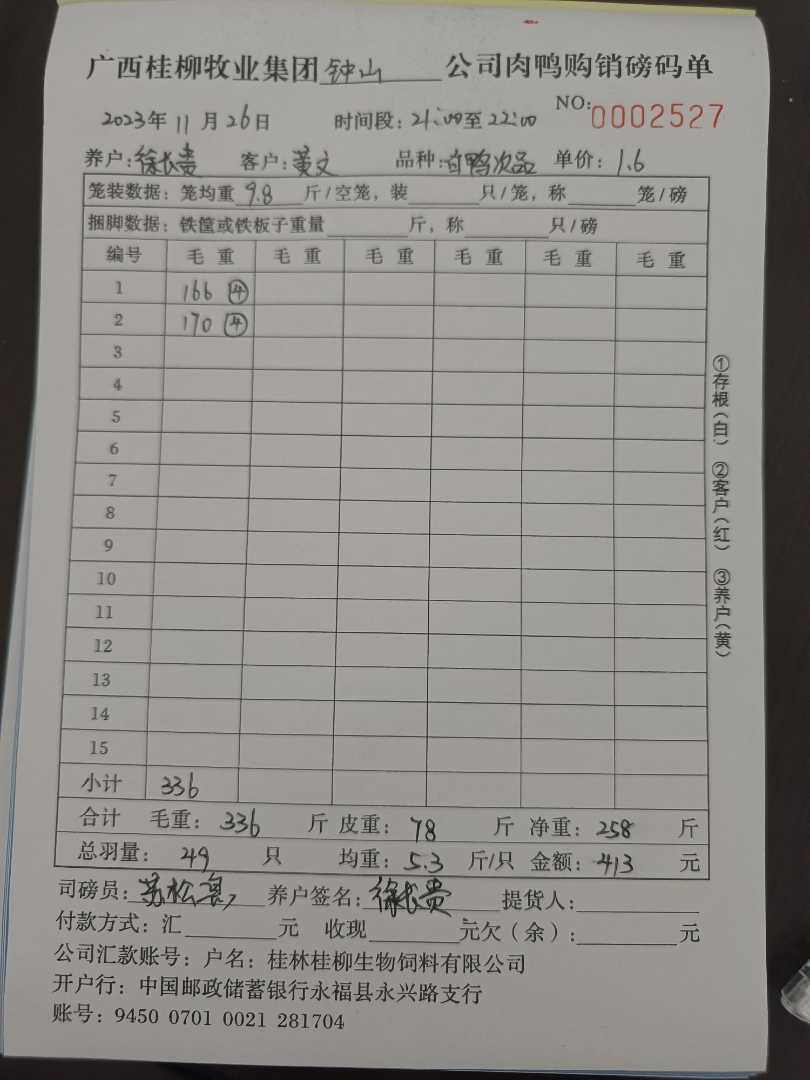 广西桂柳牧业集团 钟山 公司肉鸭购销磅码单
NO:0002527
2023年 11 月 26日 时间段: 21:00至 22:00
养户: 徐长贵 客户: 黄文 品种: 白鸭次品 单价: 1.6
笼装数据: 笼均重 9.8 斤/空笼, 装 只/笼, 称 笼/磅
捆脚数据: 铁筐或铁板子重量 斤, 称 只/磅
编号 毛 重 毛 重 毛 重 毛 重 毛 重 毛 重
1 166 ④
2 170 ④
3
4
5
6
7
8
9
10
11
12
13
14
15
小计 336
合计 毛重: 336 斤 皮重: 78 斤 净重: 258 斤
总羽量: 49 只 均重: 5.3 斤/只 金额: 413 元
司磅员: 养户签名: 徐长贵 提货人:
付款方式: 汇 元 收现 元欠(余): 元
公司汇款账号: 户名: 桂林桂柳生物饲料有限公司
开户行: 中国邮政储蓄银行永福县永兴路支行
账号: 9450 0701 0021 281704
①存根(白) ②客户(红) ③养户(黄)